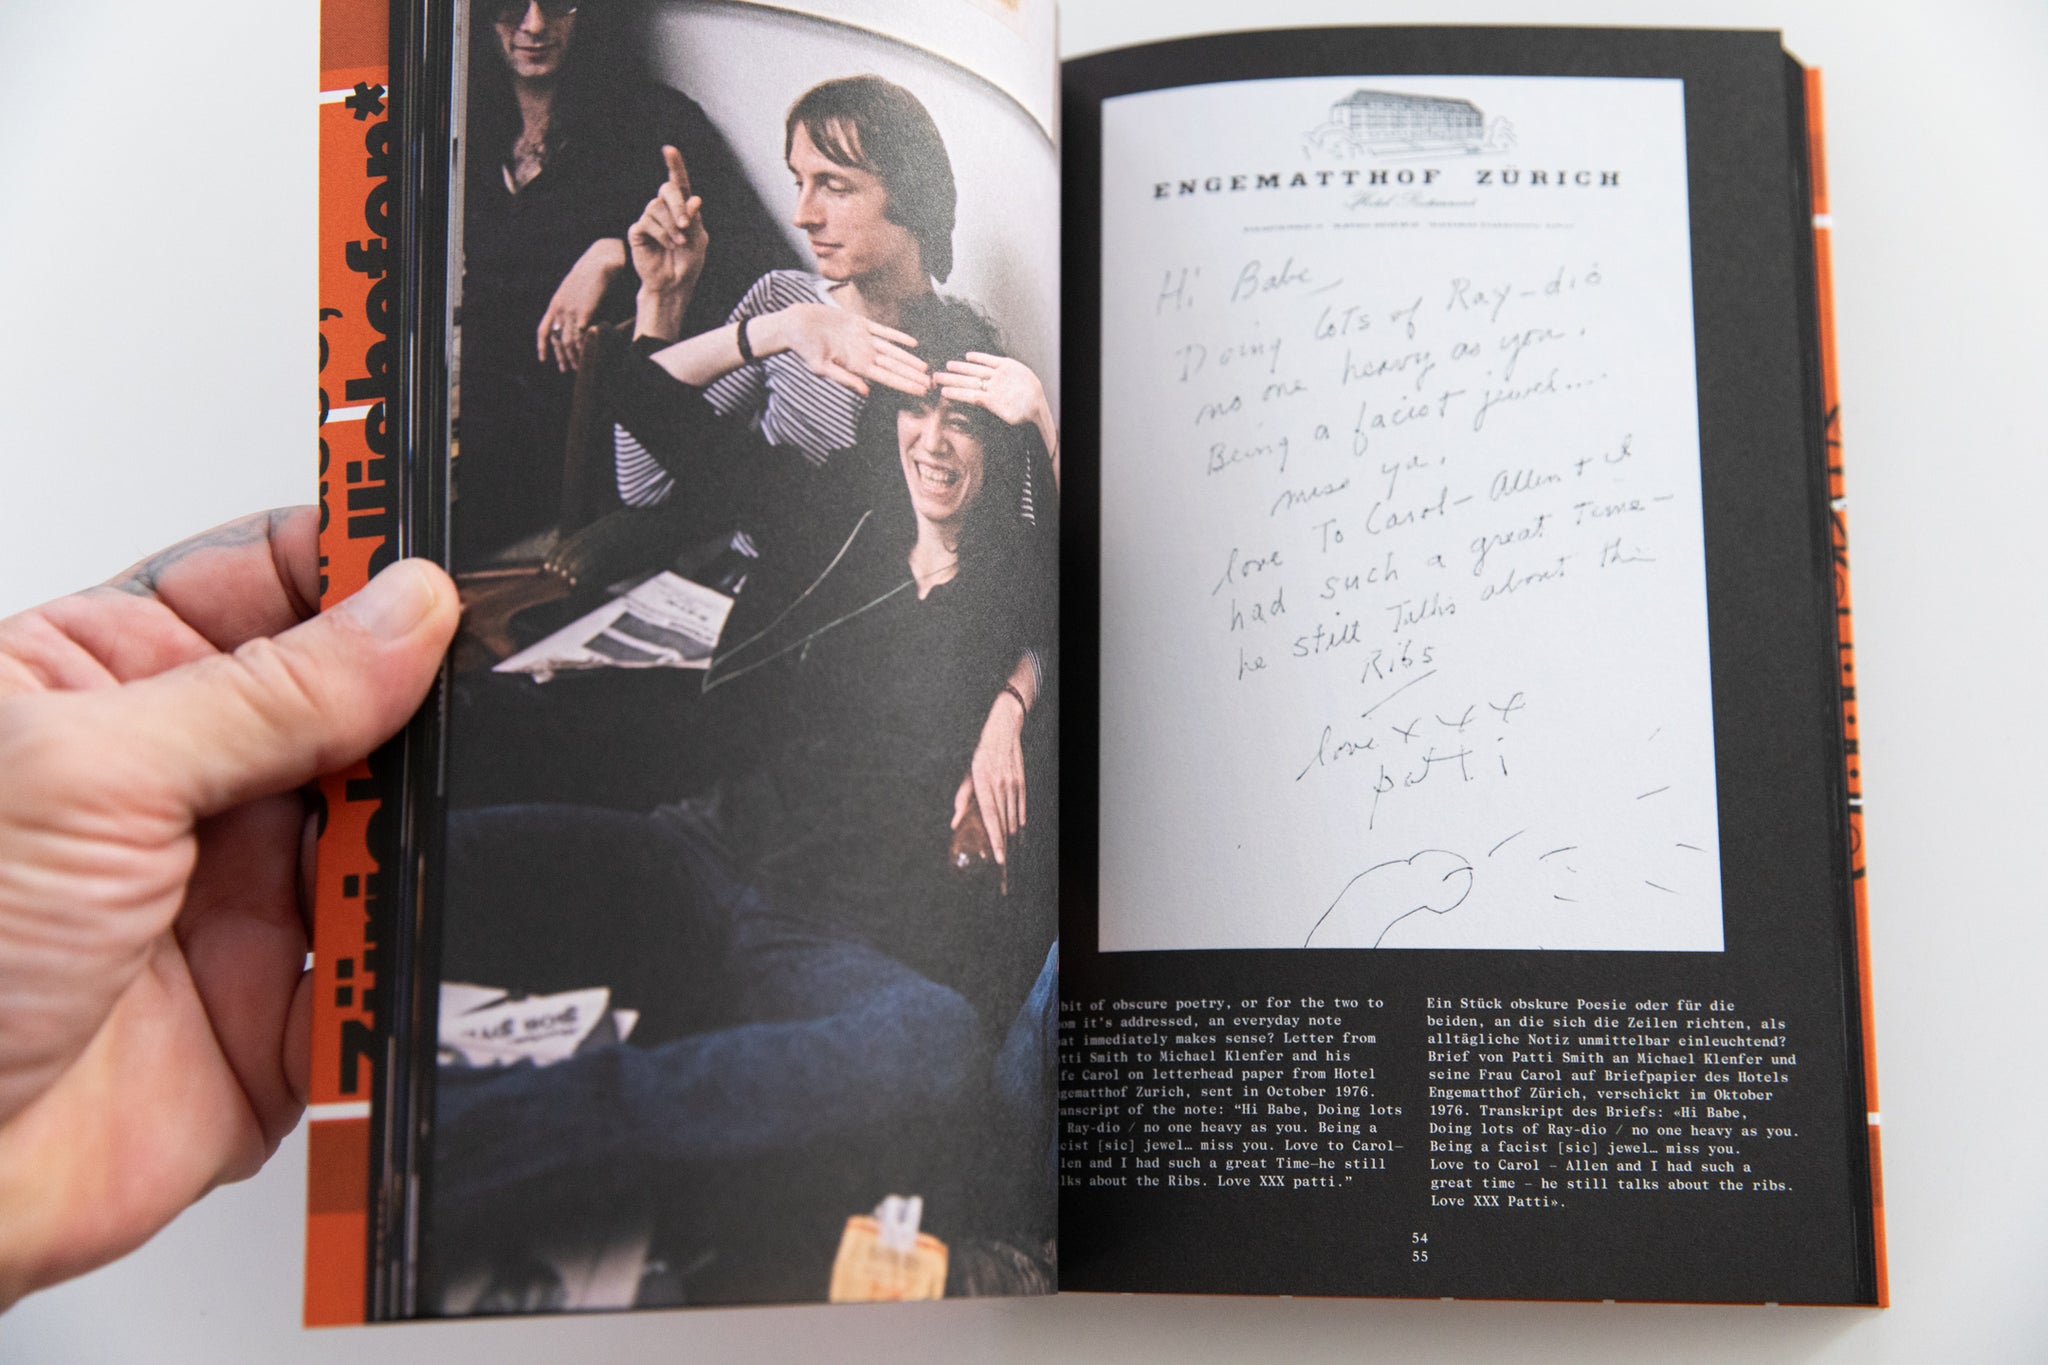 ENGEMATTHOF ZÜRICH
Hi Babe
Doing lots of Ray-dio
no one heavy as you.
Being a facist jewel....
miss ya.
love To Carol- Allen + I
had such a great Time-
he still Talks about the
Ribs
love x x x
patti
bit of obscure poetry, or for the two to
it's addressed, an everyday note
immediately makes sense? Letter from
Smith to Michael Klenfer and his
Carol on letterhead paper from Hotel
Zurich, sent in October 1976.
of the note: “Hi Babe, Doing lots
Ray-dio / no one heavy as you. Being a
[sic] jewel… miss you. Love to Carol—
and I had such a great Time—he still
about the Ribs. Love XXX patti.”
Ein Stück obskure Poesie oder für die
beiden, an die sich die Zeilen richten, als
alltägliche Notiz unmittelbar einleuchtend?
Brief von Patti Smith an Michael Klenfer und
seine Frau Carol auf Briefpapier des Hotels
Engematthof Zürich, verschickt im Oktober
1976. Transkript des Briefes: «Hi Babe,
Doing lots of Ray-dio / no one heavy as you.
Being a facist [sic] jewel… miss you.
Love to Carol – Allen and I had such a
great time – he still talks about the ribs.
Love XXX Patti».
54
55